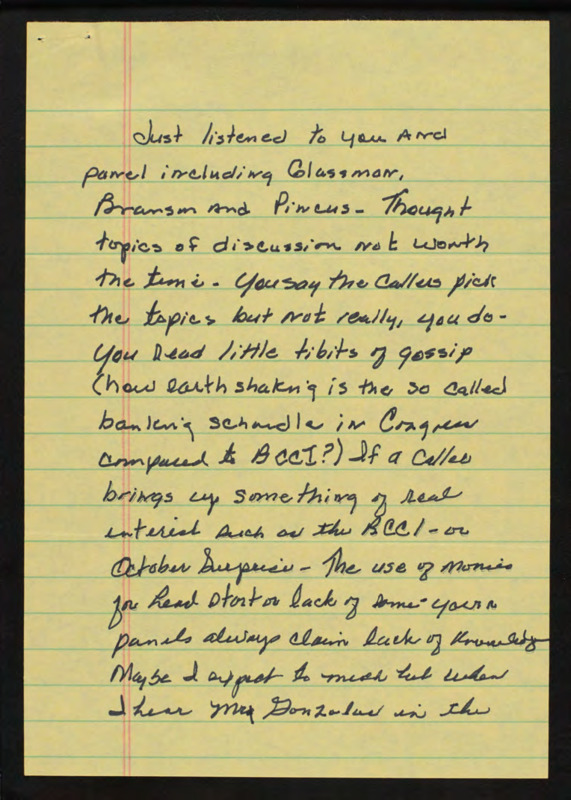 Just listened to you And
panel including Glassman,
Branson And Pincus - Thought
topics of discussion not worth
the time - You say the Callers pick
the topics but not really, you do -
You Read little tibits of gossip
(how Earth shakn'g is the so called
bankin'g schandle in Congress
compared to BCCI?) If a Caller
brings up something of real
interest such as the BCCI - or
October Surprise - The use of monies
for head start or lack of same - your
panels always claim lack of knowledge
Maybe I expect to much but when
I hear Mr Gonzalas in the